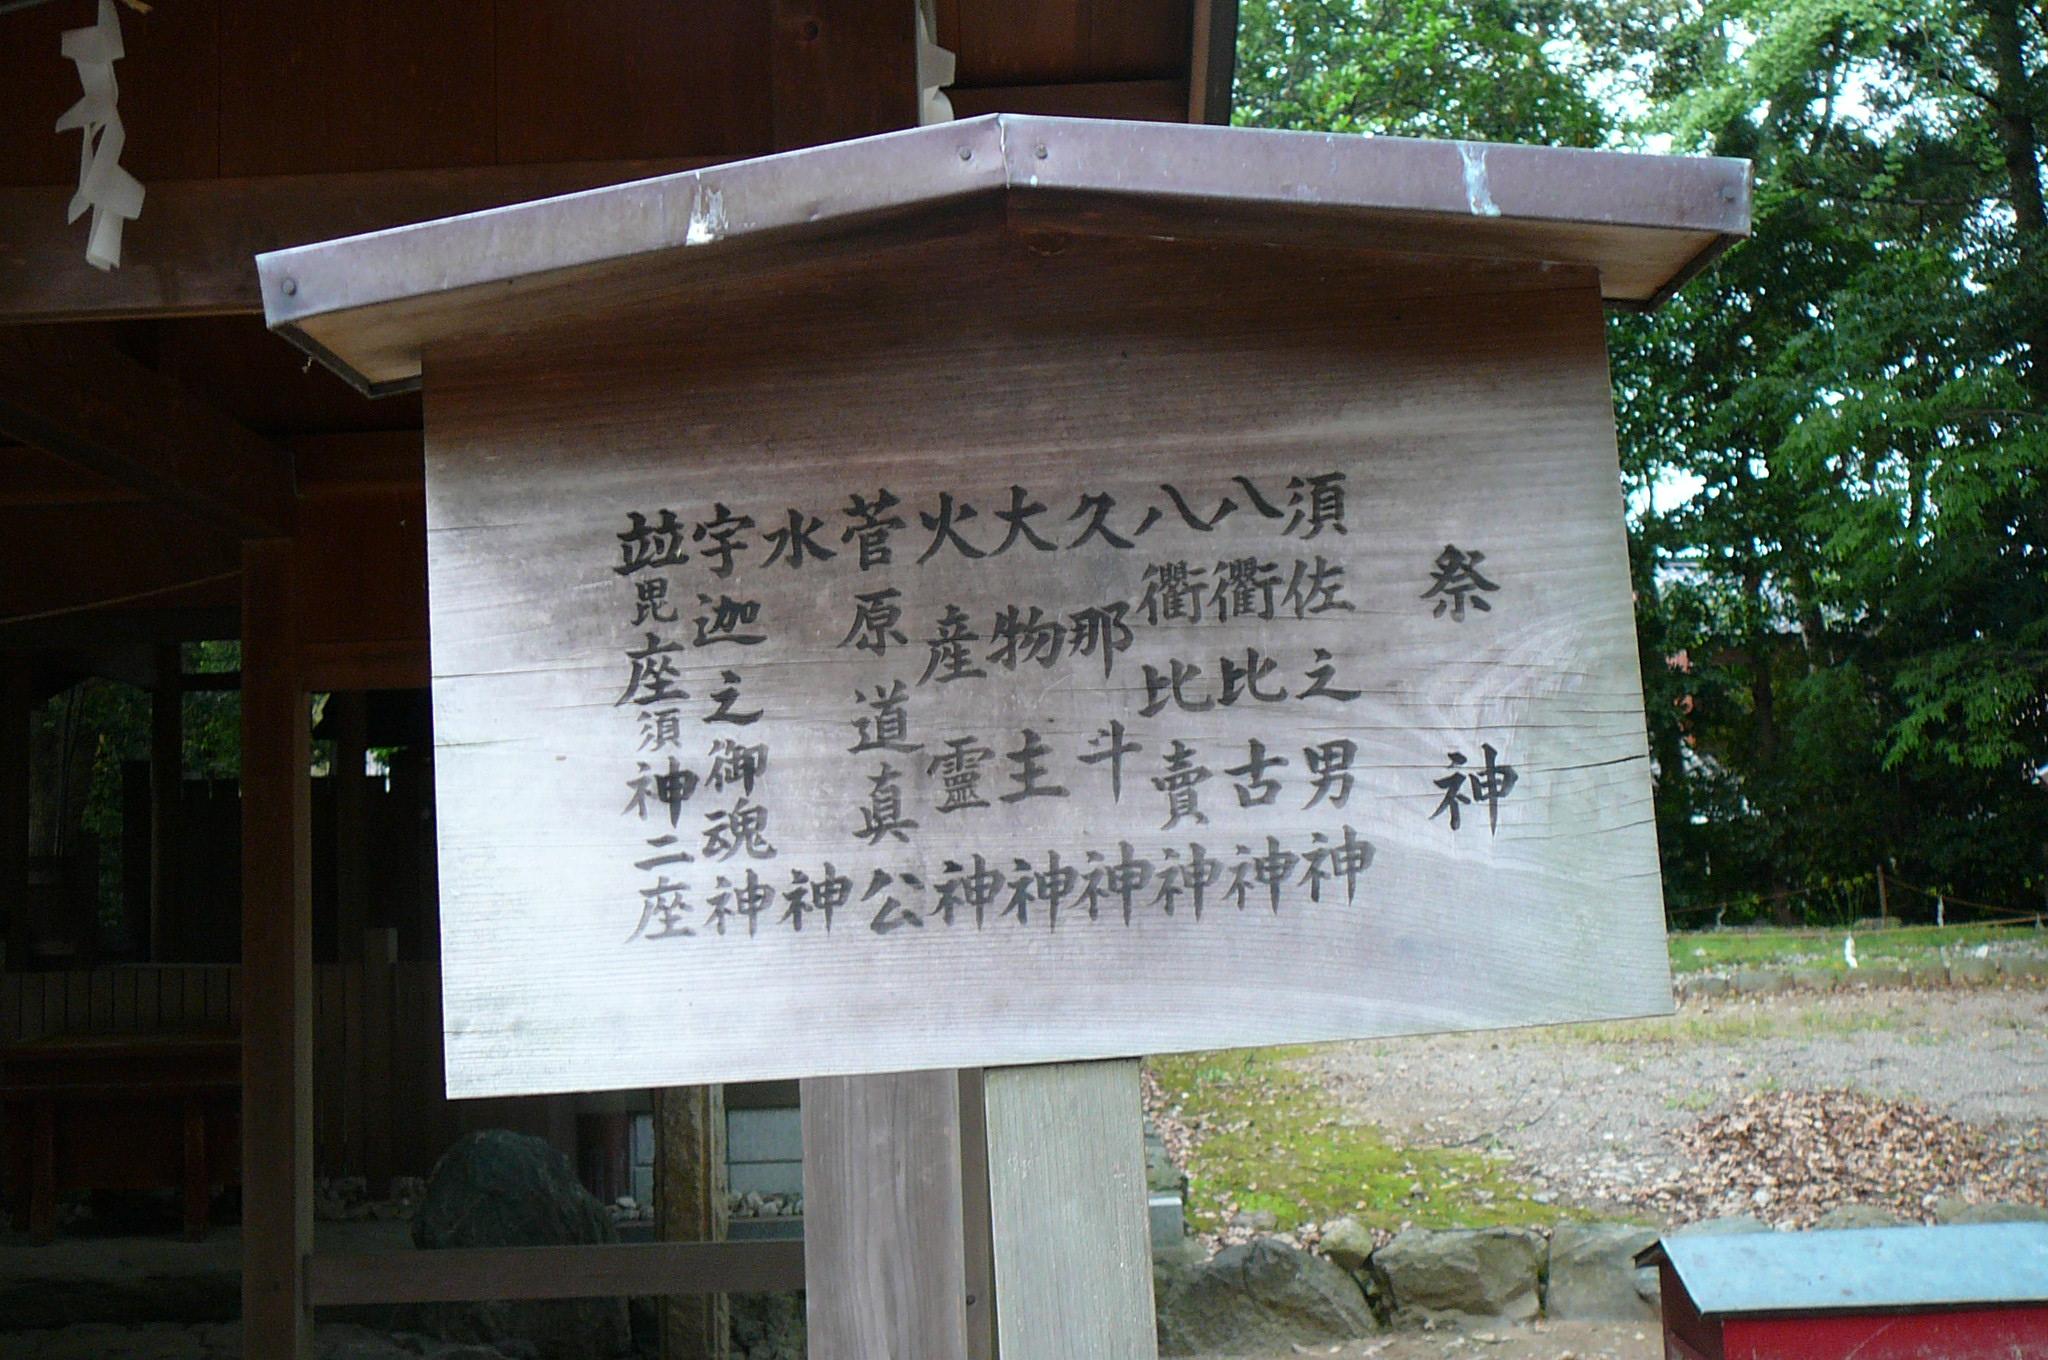 祭神
須佐之男神
八衢比古神
八衢比賣神
久那斗神
大物主神
火産霊神
菅原道真公
水神
宇迦之御魂神
並毘座須神二座